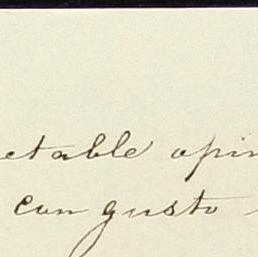 etable opin
con gusto